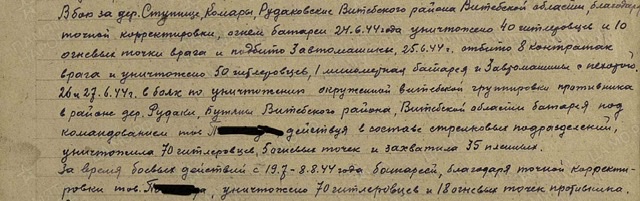 В бою за дер. Ступище, Комары, Рудаковские Витебского района Витебской области благодаря
точной корректировки, огнем батареи 24.6.44 года уничтожено 40 гитлеровцев и 10
огневых точек врага и подбито 3 автомашины, 25.6.44 г. отбито 8 контратак
врага и уничтожено 50 гитлеровцев, 1 минометная батарея и 3 автомашины с пехотой.
26 и 27.6.44 г. в боях по уничтожению окруженной витебской группировки противника
в районе дер. Рудаки, Витебского района, Витебской области батарея под
командованием тов. П действуя в составе стрелковых подразделений,
уничтожила 70 гитлеровцев, 5 огневых точек и захватила 35 пленных.
За время боевых действий с 19.7 - 8.8.44 года батареей, благодаря точной корректи-
ровки тов. П ра, уничтожено 70 гитлеровцев и 18 огневых точек противника.